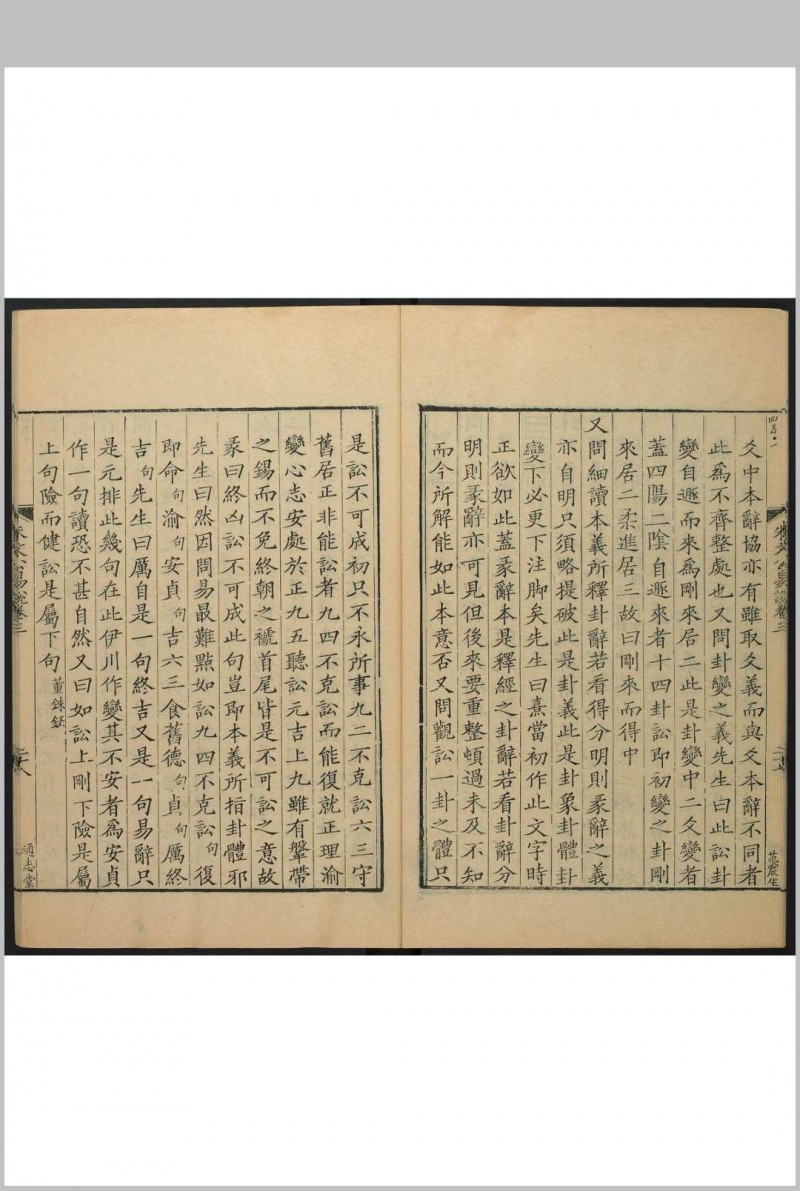 爻中本辭協亦有雖取爻義而與爻本辭不同者
此為不齊整處也又問卦變之義先生曰此訟卦
變自遯而來為剛來居二此是卦變中二爻變者
蓋四陽二陰自遯來者十四卦訟即初變之卦剛
來居二柔進居三故曰剛來而得中
又問細讀本義所釋卦辭若看得分明則彖辭之義
亦自明只須略提破此是卦義此是卦象卦體卦
變下必更下注脚矣先生曰熹當初作此文字時
正欲如此蓋彖辭本是釋經之卦辭若看卦辭分
明則彖辭亦可見但後來要重整頓過未及不知
而今所解能如此本意否又問觀訟一卦之體只
是訟不可成初只不永所事九二不克訟六三守
舊居正非能訟者九四不克訟而能復就正理渝
變心志安處於正九五聽訟元吉上九雖有鞶帶
之錫而不免終朝之褫首尾皆是不可訟之意故
彖曰終凶訟不可成此句豈即本義所指卦體邪
先生曰然因問易最難點如訟九四不克訟句復
即命句渝句安貞句吉六三食舊德句貞句厲終
吉句先生曰厲自是一句終吉又是一句易辭只
是元排此幾句在此伊川作變其不安者為安貞
作一句讀恐不甚自然又曰如訟上剛下險是屬
上句險而健訟是屬下句董銖録
通志堂